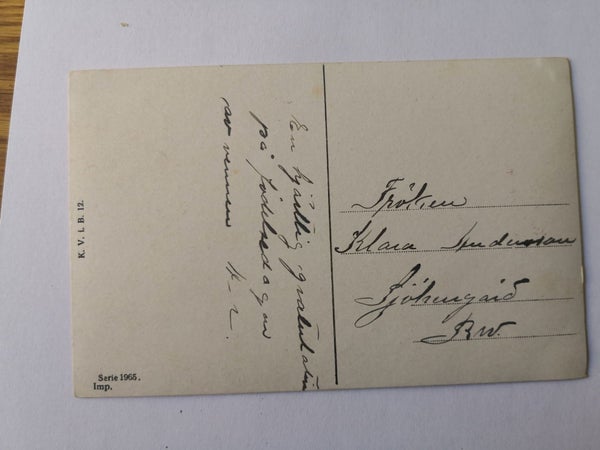 En hjärtlig gratulation
på födelsedagen
av vännen H-r.
Fröken
Klara Anderson
Rv.
K. V. i. B. 12.
Serie 1965.
Imp.